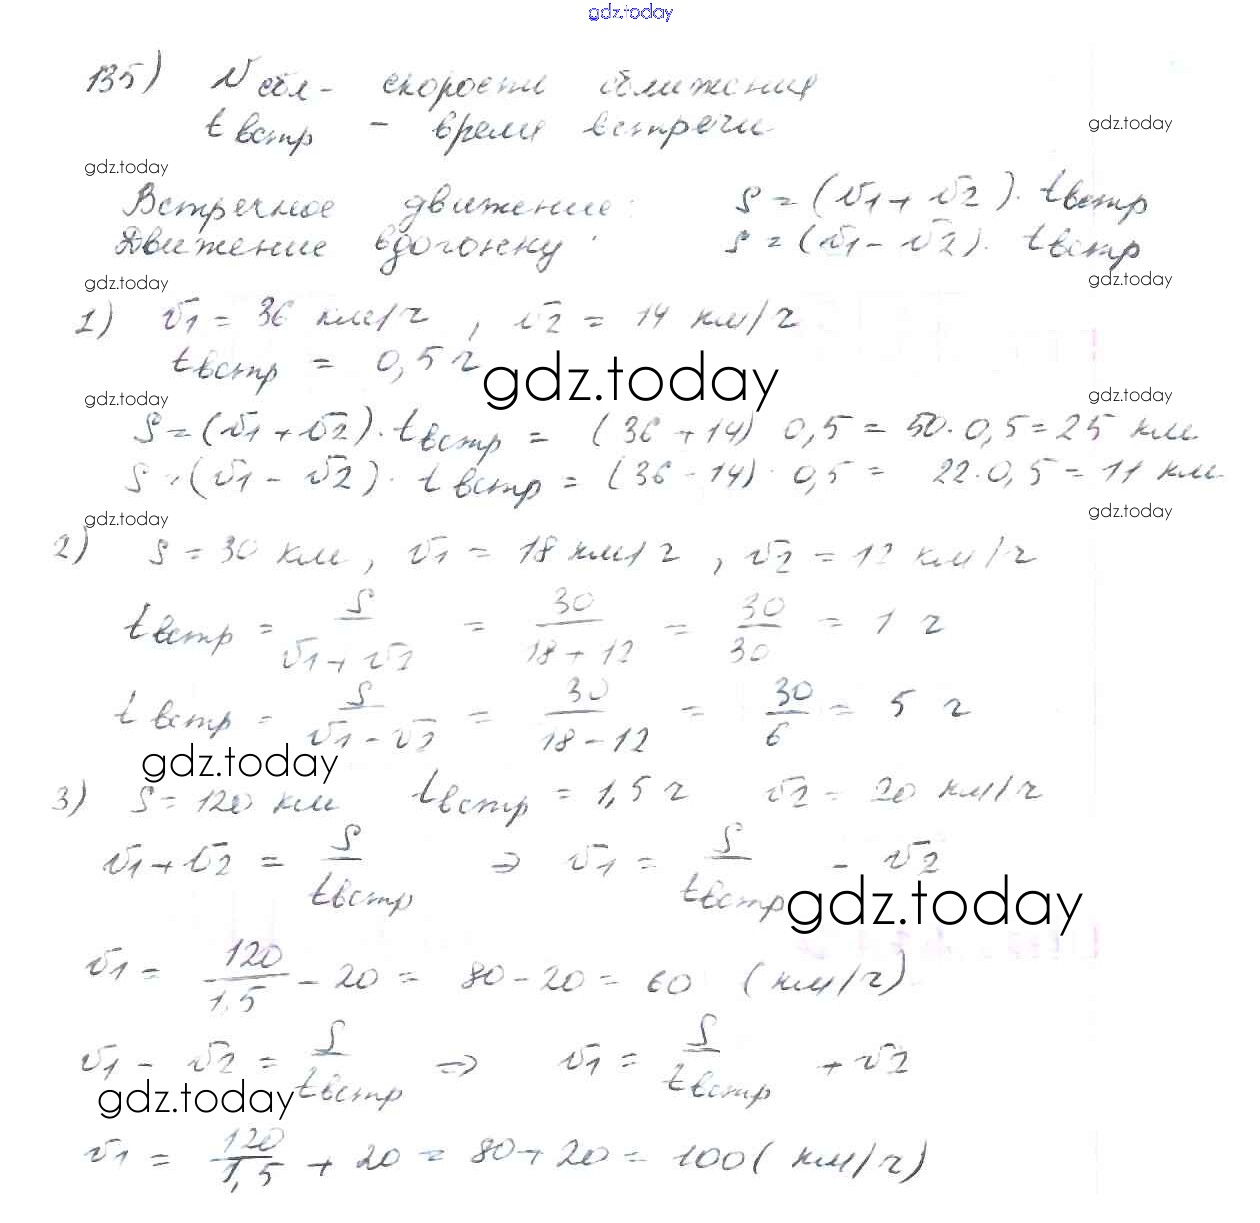 gdz.today
135) V сбл - скорости сближения
t встр - время встречи
gdz.today
gdz.today
Встречное движение: S = (V1 + V2) · tвстр
Движение вдогонку: S = (V1 - V2) · tвстр
gdz.today
gdz.today
1) V1 = 36 км/ч, V2 = 14 км/ч
tвстр = 0,5 ч
gdz.today
gdz.today
gdz.today
S = (V1 + V2) · tвстр = (36 + 14) 0,5 = 50 · 0,5 = 25 км
S = (V1 - V2) · tвстр = (36 - 14) · 0,5 = 22 · 0,5 = 11 км
gdz.today
gdz.today
2) S = 30 км, V1 = 18 км/ч, V2 = 12 км/ч
tвстр = S / V1 + V2 = 30 / 18 + 12 = 30 / 30 = 1 ч
tвстр = S / V1 - V2 = 30 / 18 - 12 = 30 / 6 = 5 ч
gdz.today
3) S = 120 км tвстр = 1,5 ч V2 = 20 км/ч
V1 + V2 = S / tвстр ⇒ V1 = S / tвстр - V2
gdz.today
V1 = 120 / 1,5 - 20 = 80 - 20 = 60 (км/ч)
V1 - V2 = S / tвстр ⇒ V1 = S / tвстр + V2
gdz.today
V1 = 120 / 1,5 + 20 = 80 + 20 = 100 (км/ч)